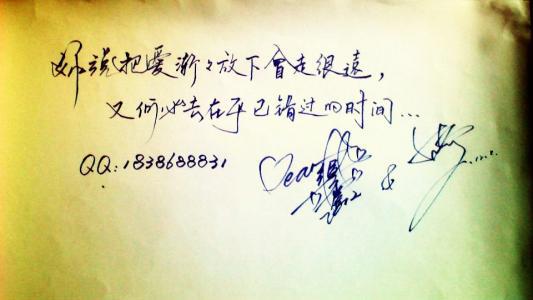 你说把爱渐々放下會走很遠，
又何必去在乎已错过的时间...
QQ:1838688831
Dear
&